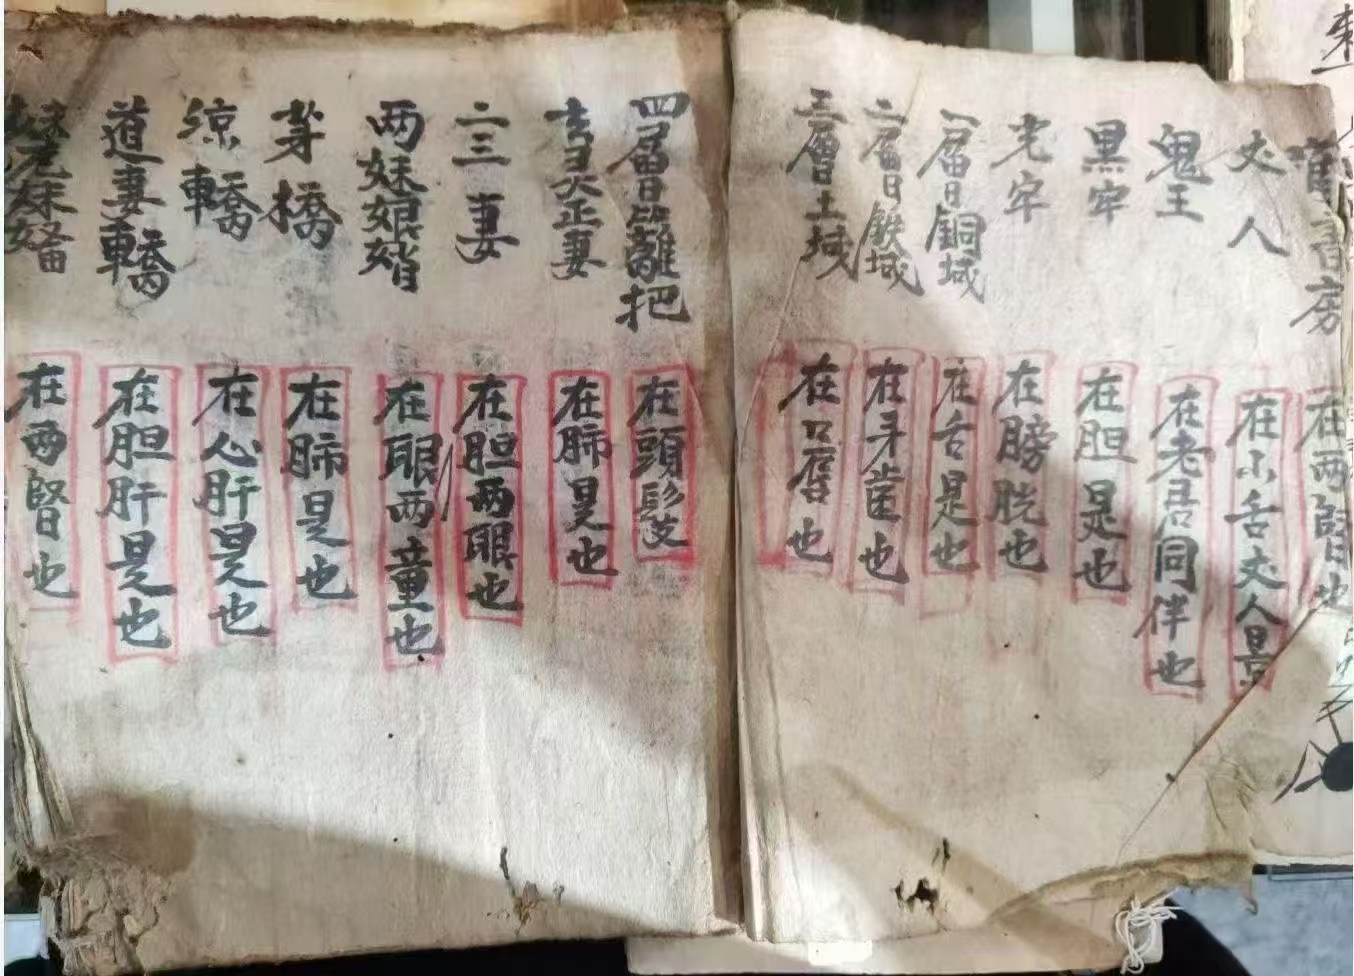 書房
在两腎也
丈人
在小舌丈人是
鬼王
在老君同伴也
黑牢
在胆是也
牢
在膀胱也
一層銅城
在舌是也
二層鉄城
在牙齒也
三層土城
在口唇也
四層籬把
在頭髮
正妻
在肺是也
二三妻
在胆两眼也
两妹娘
在眼两童也
芽橋
在肺是也
凉轎
在心肝是也
道妻轎
在胆肝是也
在两腎也